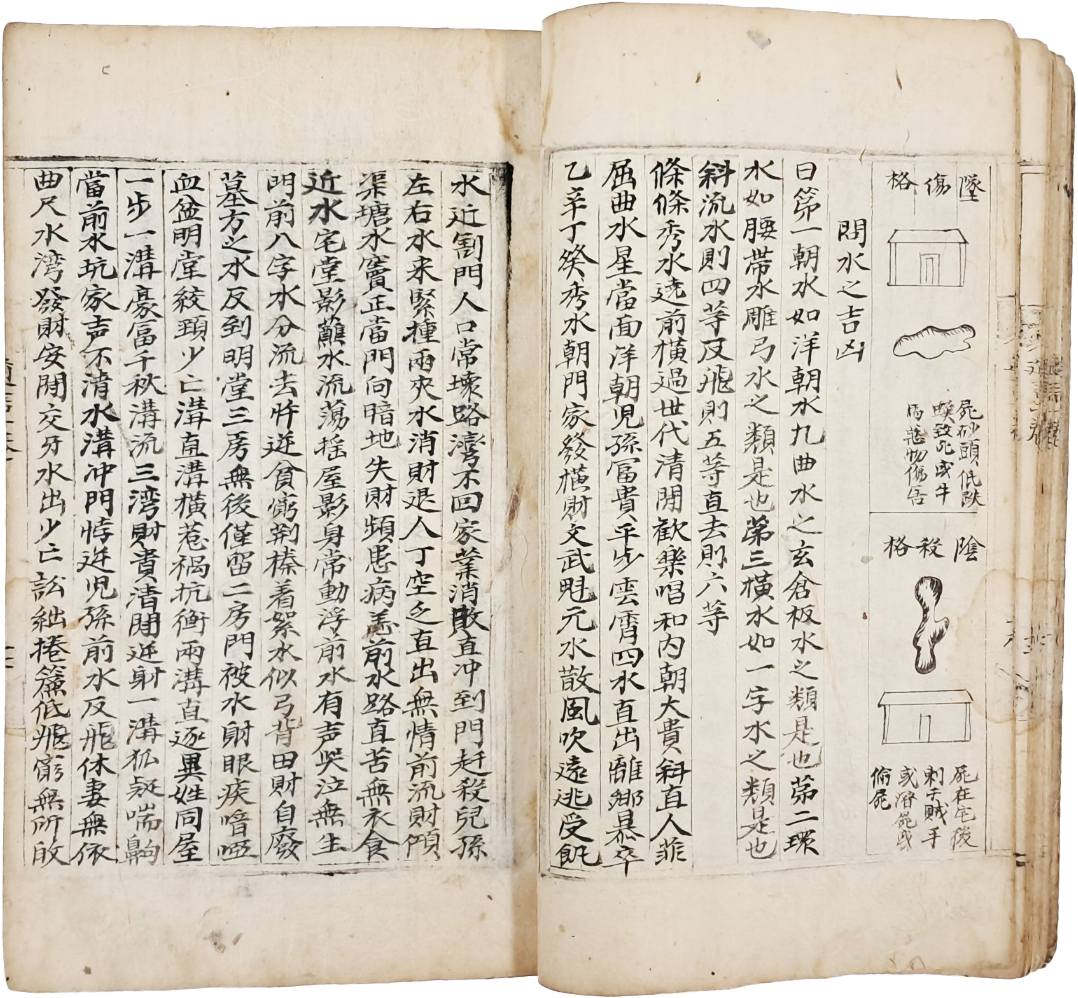 墜傷格
屍砂頭低跌
蛛致死或牛
馬惹物傷舌
陰殺格
屍在宅後
刺于賊手
或溶屍或
偷屍
問水之吉凶
曰第一朝水如洋朝水九曲水之玄倉板水之類是也第二環
水如腰帶水雕弓水之類是也第三橫水如一字水之類是也
斜流水則四等反飛則五等直去則六等
條條秀水遶前橫過世代清閒歡樂唱和内朝大貴斜直人菲
屈曲水星當面洋朝兒孫富貴平步雲霄四水直出離鄉暴卒
乙辛丁癸秀水朝門家發橫財文武魁元水散風吹遠逃受飢
水近割門人口常壞路灣不回家業消敗直冲到門赶殺兒孫
左右水來緊撞兩夾水消財退人丁空乏直出無情前流財傾
渠塘水竇正當門向暗地失財頻患病恙前水路直苦無衣食
近水宅堂影蘸水流蕩摇屋影身常動浮前水有声哭泣無生
門前八字水分流去忤逆貧窮荆榛着絮水似弓背田財自廢
墓方之水反到明堂三房無後僅留二房門被水射眼疾喑啞
血盆明堂絞頸少亡溝直溝橫惹禍抗衡兩溝直逐異姓同屋
一步一溝豪富千秋溝流三湾財貴清閒逆射一溝狐疑喘齁
當前水坑家声不清水溝冲門悖逆児孫前水反飛休妻無依
曲尺水湾發財安閒交牙水出少亡訟絀捲簾低飛窮無所收